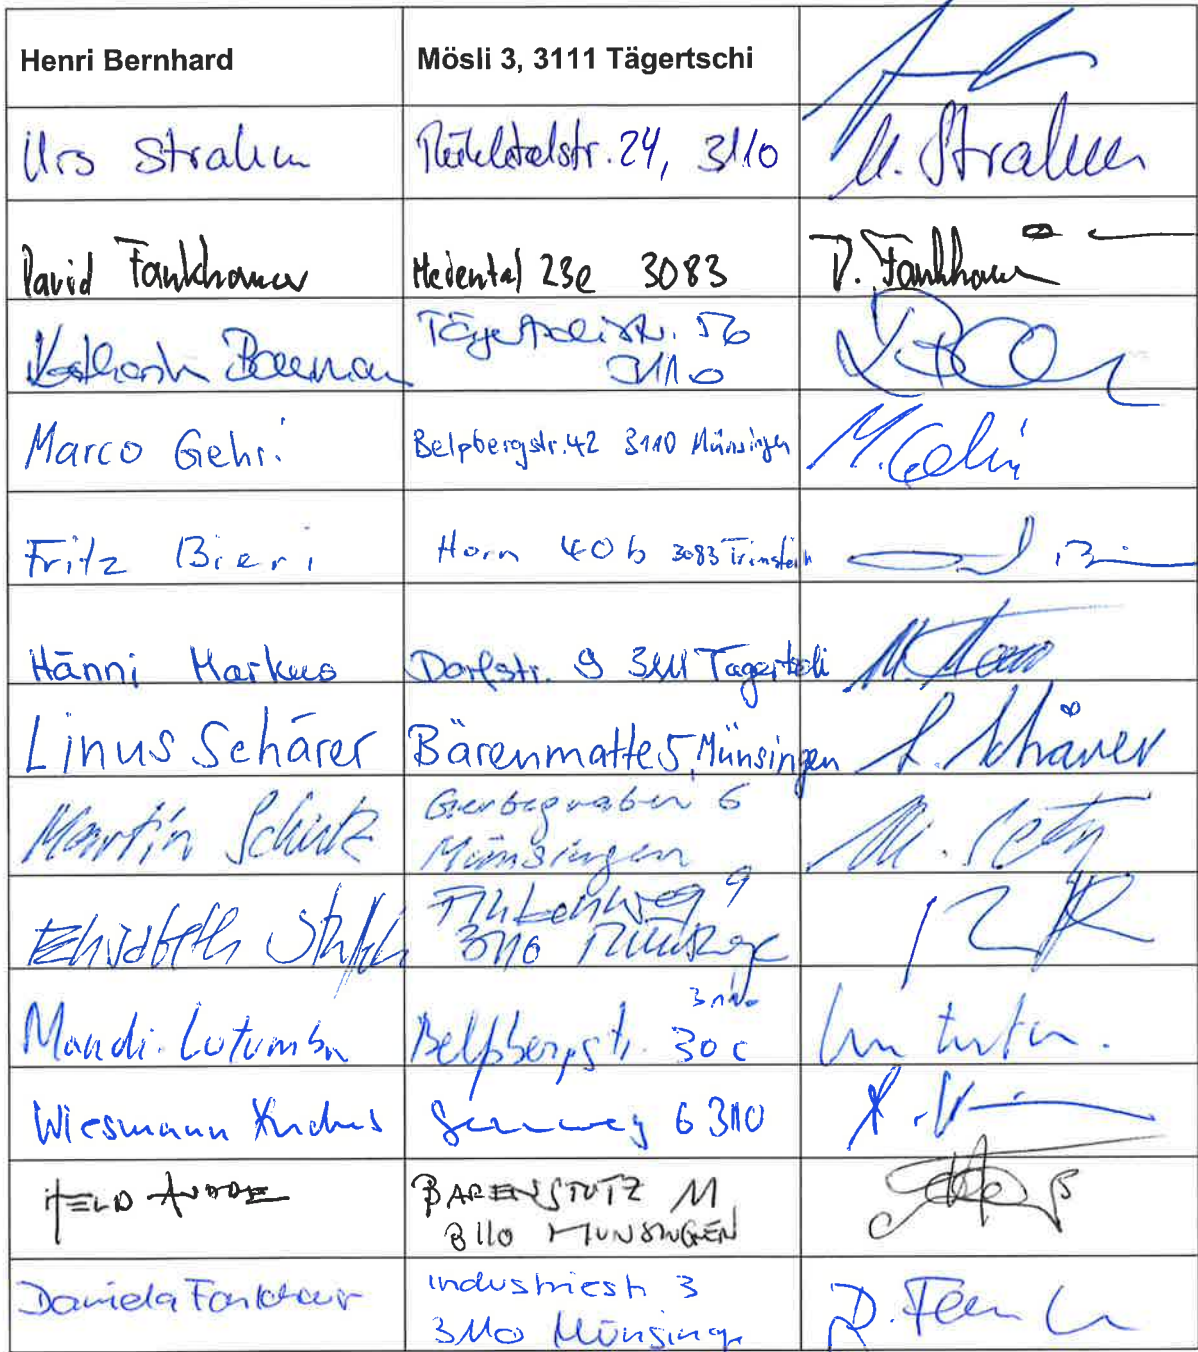 Henri Bernhard Mösli 3, 3111 Tägertschi
Urs Strahm 24, 3110 U. Strahm
David Fankhauser 23e 3083 D. Fankhauser
Tägertschistr. 56
3110
Marco Gehri Belpbergstr. 42 3110 Münsingen M. Gehri
Fritz Bieri Horn 40b 3083 Trimstein
Hänni Markus Dorfstr. 9 3111 Tägertschi
Linus Schärer Bärenmatte 5, Münsingen L. Schärer
Martin Gerbegraben 6
Münsingen
Elisabeth 9
3110 Münsingen
3110
Lutumba Belpbergstr. 30c
Wiesmann 6 3110
HELD ANDRE BÄRENSTUTZ 11
3110 MÜNSINGEN
Daniela Fankhauser Industriestr 3
3110 Münsingen